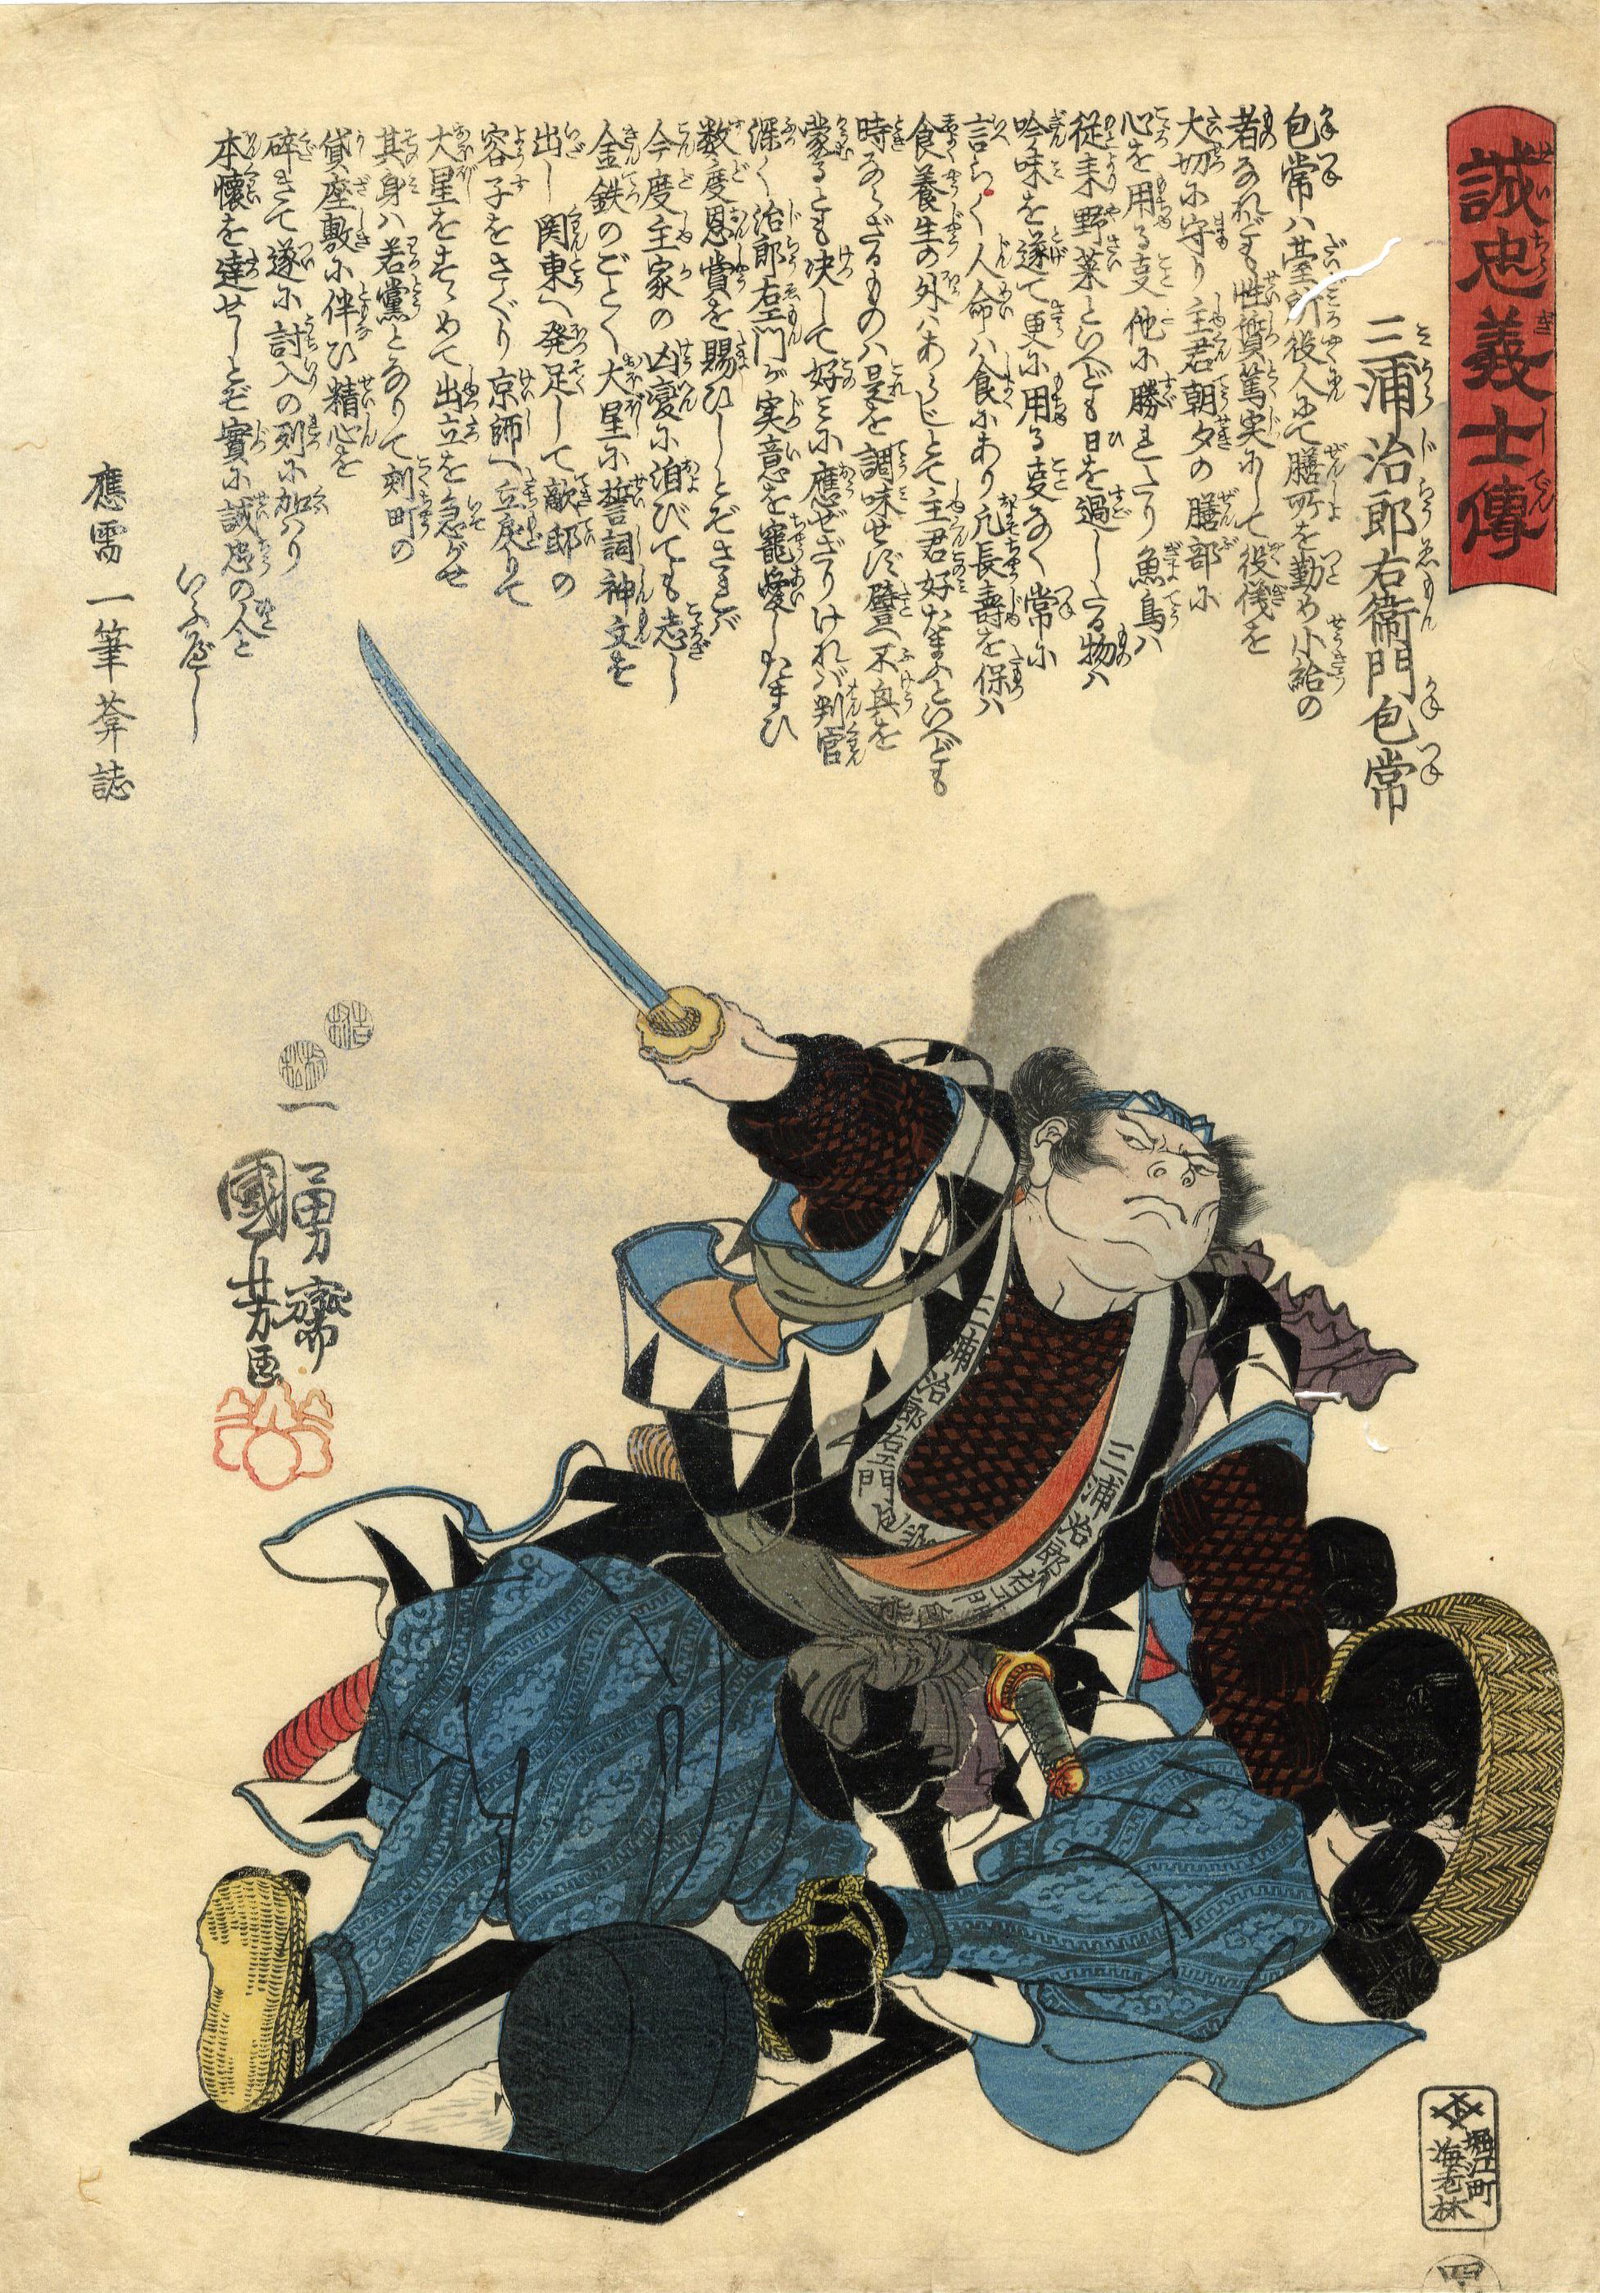 誠忠義士傳
三浦治郎右衛門包常
包常ハ臺所役人にて膳所を勤め小給の
者なれども性質篤実にして役儀を
大切に守り主君朝夕の膳部に
心を用る亊他に勝れたり魚鳥ハ
従来野菜といへども日を過したる物ハ
吟味を遂て更に用る亊なく常に
言らく人命ハ食にあり凡長壽を保ハ
食養生の外ハあらじとて主君好たまふといへども
時ならざるものハ是を調味せず譬へ不興を
蒙るとも决して好みに應ぜざりけれバ判官
深く治郎右エ門が実意を寵愛したまひ
数度恩賞を賜ひしとぞされバ
今度主家の凶変に泊びても志し
金鉄のごとく大星に誓詞神文を
出し関東へ発足して敵邸の
容子をさぐり京師へ立戻りて
大星をすゝめて出立を急がせ
其身ハ若黨となりて刻町の
貸座敷に伴ひ精心を
碎きて遂に討入の列に加ハり
本懐を達せしとぞ實に誠忠の人と
いふべし
應需 一筆葊誌
一勇齋
國芳画
三浦治郎右エ門包常
三浦治郎右エ門
堀江町
海老林